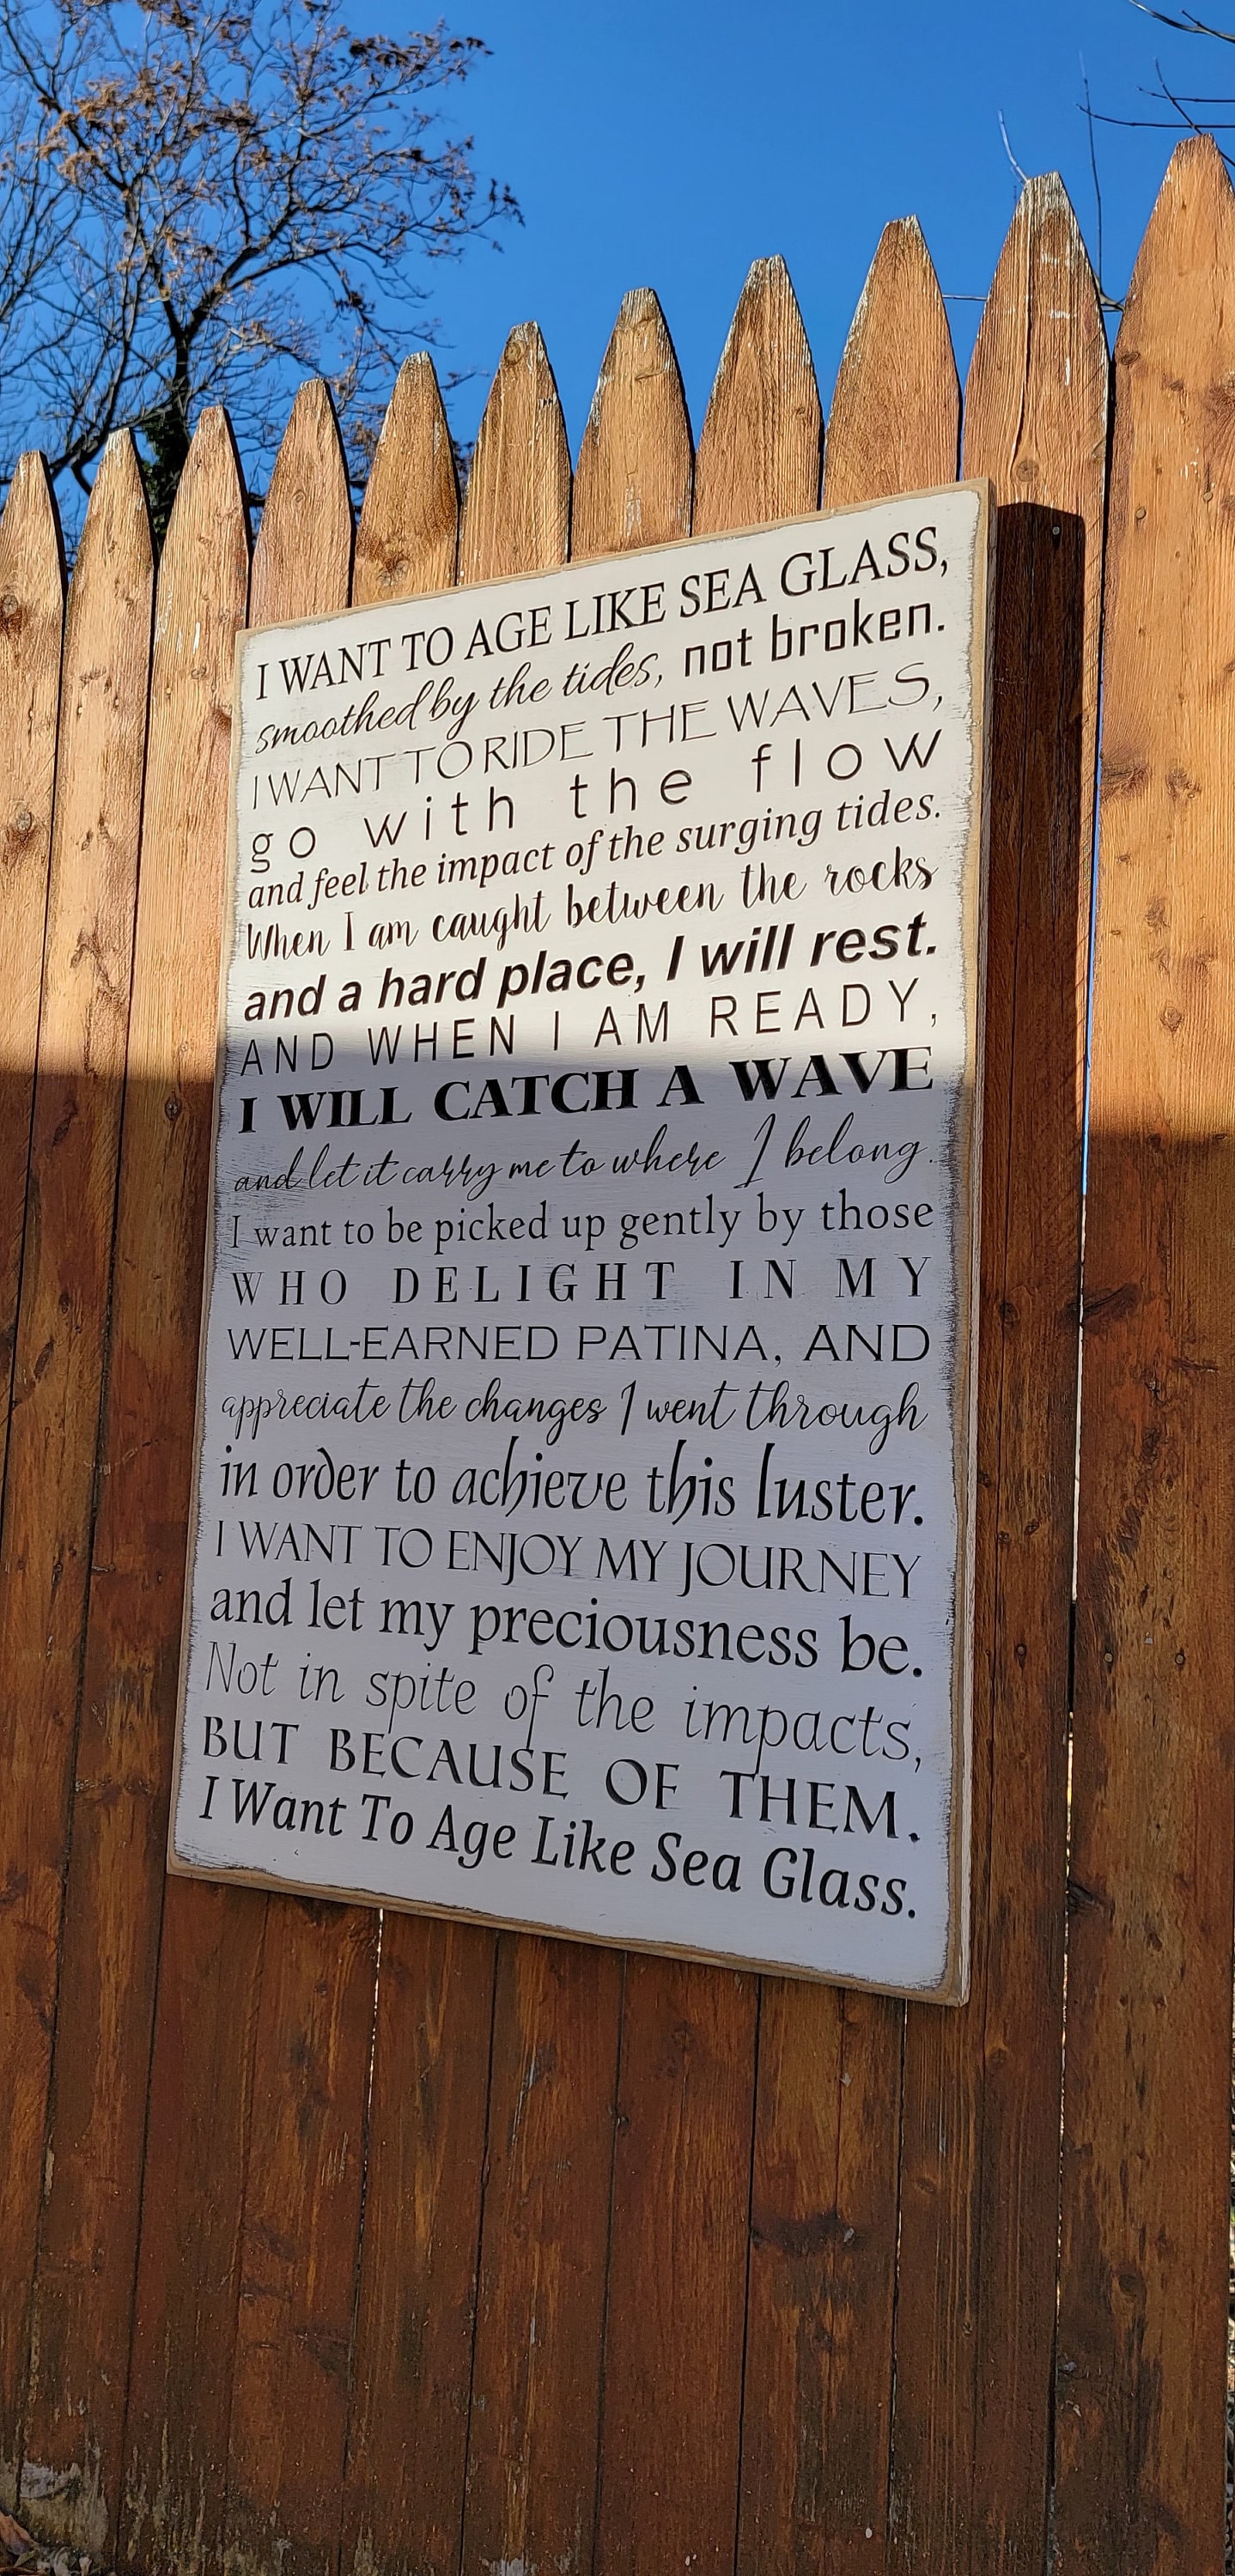 I WANT TO AGE LIKE SEA GLASS,
smoothed by the tides, not broken.
I WANT TO RIDE THE WAVES,
go with the flow
and feel the impact of the surging tides.
When I am caught between the rocks
and a hard place, I will rest.
AND WHEN I AM READY,
I WILL CATCH A WAVE
and let it carry me to where I belong.
I want to be picked up gently by those
WHO DELIGHT IN MY
WELL-EARNED PATINA, AND
appreciate the changes I went through
in order to achieve this luster.
I WANT TO ENJOY MY JOURNEY
and let my preciousness be.
Not in spite of the impacts,
BUT BECAUSE OF THEM.
I Want To Age Like Sea Glass.